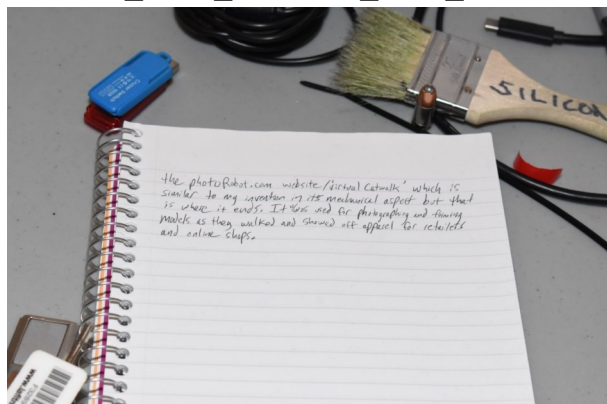 SILICON
the photoRobot.com website/'virtual Catwalk' which is
similar to my invention in its mechanical aspect but that
is where it ends. It was used for photographing and filming
models as they walked and showed off apparel for retailers
and online shops.